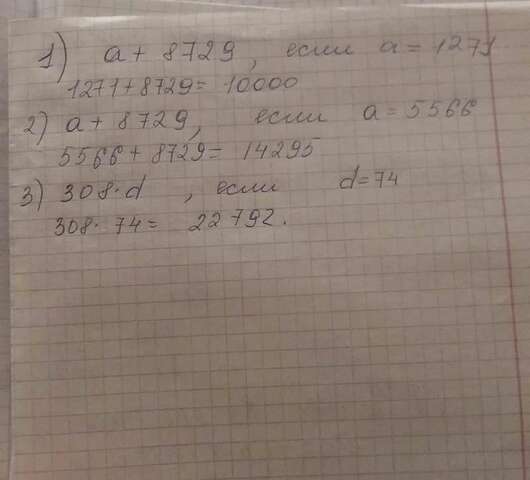 1) a + 8729, если a = 1271
1271+8729= 10000
2) a + 8729, если a = 5566
5566 + 8729= 14295
3) 308·d , если d=74
308· 74= 22792.